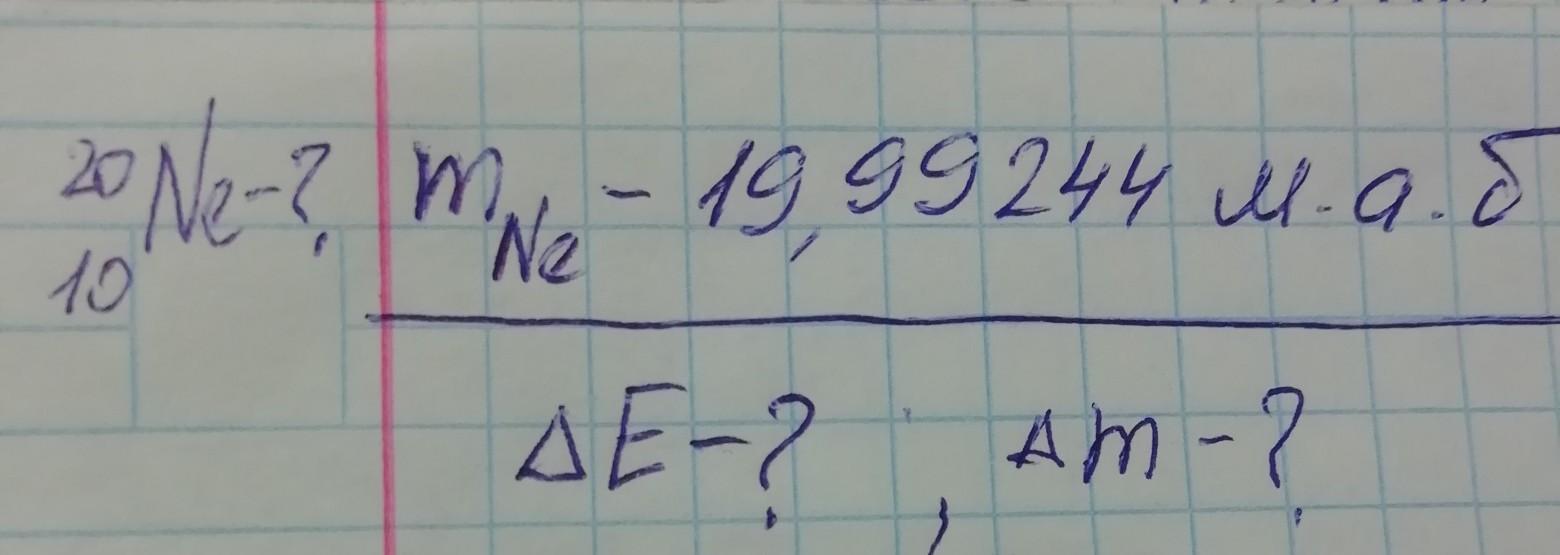 ²⁰₁₀Ne-? m_Ne - 19,99244 м.а.б
ΔE-? , Δm-?